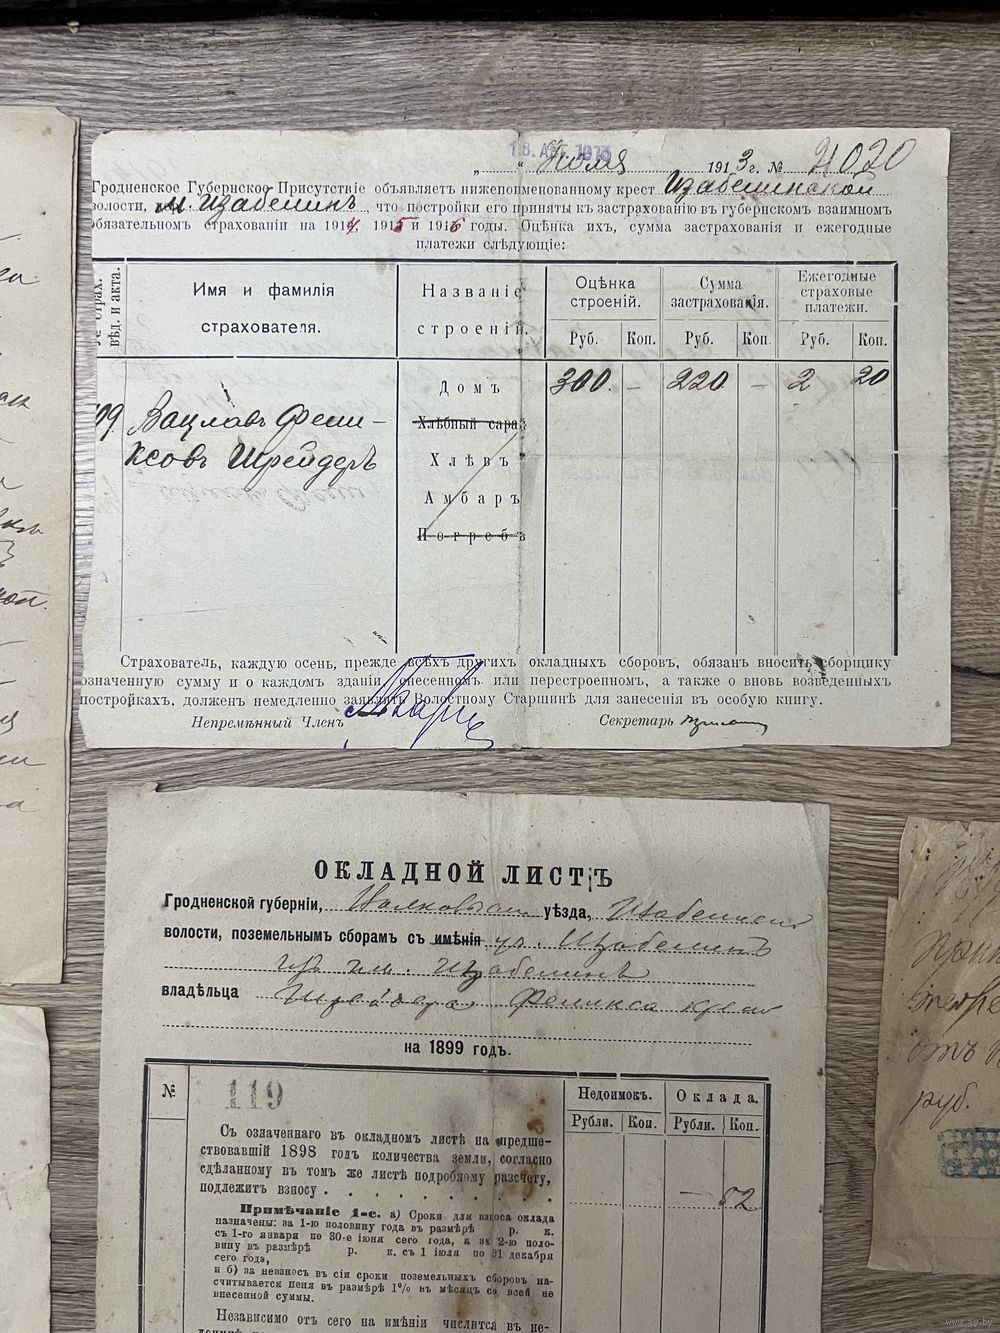 18. АВГ. 1913
„ “ Июля 1913 г. № 4020
Гродненское Губернское Присутствіе объявляетъ нижепоименованному крест. Изабелинской
волости, м. Изабелинъ, что постройки его приняты къ застрахованію въ губернскомъ взаимномъ
обязательномъ страхованіи на 1914, 1915 и 1916 годы. Оцѣнка ихъ, сумма застрахованія и ежегодные
платежи слѣдующіе:
страх. вѣд. и акта.
Имя и фамилія страхователя.
Названіе строеній.
Оцѣнка строеній.
Сумма застрахованія.
Ежегодные страховые платежи.
Руб. Коп. Руб. Коп. Руб. Коп.
Домъ 300 - 220 - 2 20
Вацлавъ Фели- Хлѣбный сарай
ксовъ Шрейдеръ Хлѣвъ
Амбаръ
Погребъ
Страхователь, каждую осень, прежде всѣхъ другихъ окладныхъ сборовъ, обязанъ вносить сборщику
означенную сумму и о каждомъ зданіи снесенномъ или перестроенномъ, а также о вновь возведенныхъ
постройкахъ, долженъ немедленно заявлять Волостному Старшинѣ для занесенія въ особую книгу.
Непремѣнный Членъ Секретарь
ОКЛАДНОЙ ЛИСТЪ
Гродненской губерніи, уѣзда,
волости, поземельнымъ сборамъ съ имѣнія Изабелинъ
им. Изабелинъ
владѣльца Шрейдера Феликса
на 1899 годъ.
№ 119 Недоимокъ. Оклада.
Рубли. Коп. Рубли. Коп.
Съ означеннаго въ окладномъ листѣ на предше-
ствовавшій 1898 годъ количества земли, согласно
сдѣланному въ томъ же листѣ подробному разсчету,
подлежитъ взносу . . . . . . . . . — 52
Примѣчаніе 1-е. а) Сроки для взноса оклада
назначены: за 1-ю половину года въ размѣрѣ р. к.
съ 1-го января по 30-е іюня сего года, а за 2-ю поло-
вину въ размѣрѣ р. к. съ 1 іюля по 31 декабря
сего года,
и б) за невзносъ въ сіи сроки поземельныхъ сборовъ на-
считывается пеня въ размѣрѣ 1% въ мѣсяцъ со всей не
внесенной суммы.
Независимо отъ сего на имѣніи числится въ не-
отъ
руб.
www.ay.by